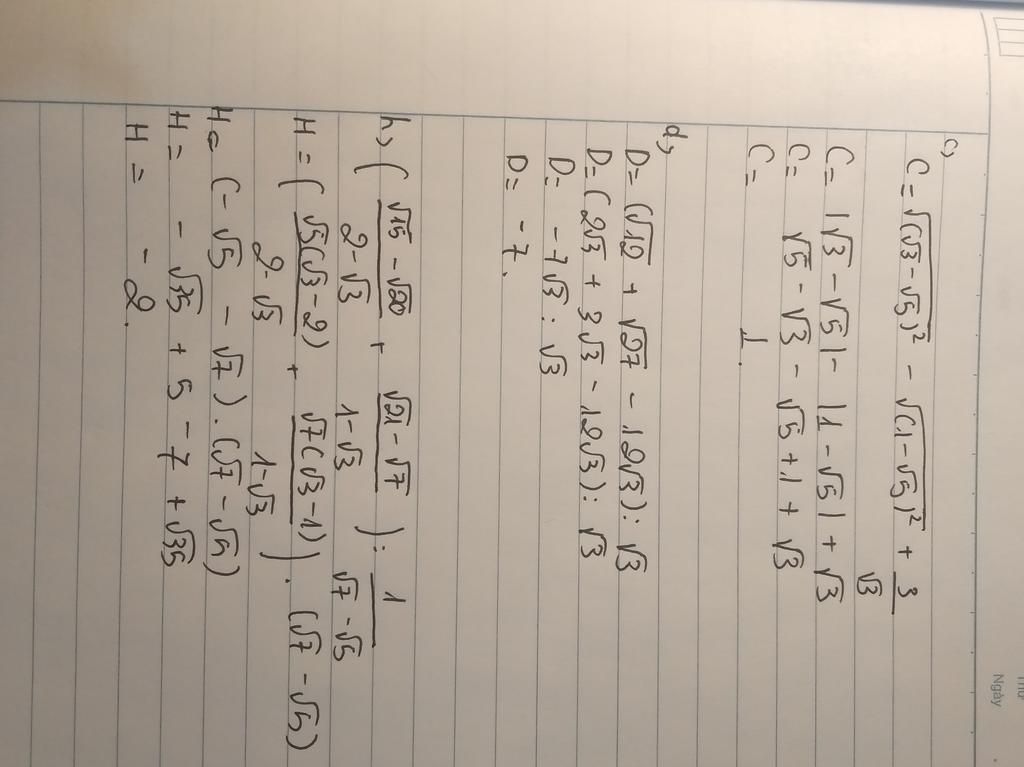 Thứ
Ngày
c,
C = √(√3 - √5)² - √(1 - √5)² + 3/√3
C = |√3 - √5| - |1 - √5| + √3
C = √5 - √3 - √5 + 1 + √3
C = 1.
d,
D = (√12 + √27 - 12√3) : √3
D = (2√3 + 3√3 - 12√3) : √3
D = -7√3 : √3
D = -7.
h, ( (√15 - √20)/(2 - √3) + (√21 - √7)/(1 - √3) ) : 1/(√7 - √5)
H = ( √5(√3 - 2)/(2 - √3) + √7(√3 - 1)/(1 - √3) ) . (√7 - √5)
H = (-√5 - √7) . (√7 - √5)
H = -√35 + 5 - 7 + √35
H = -2.